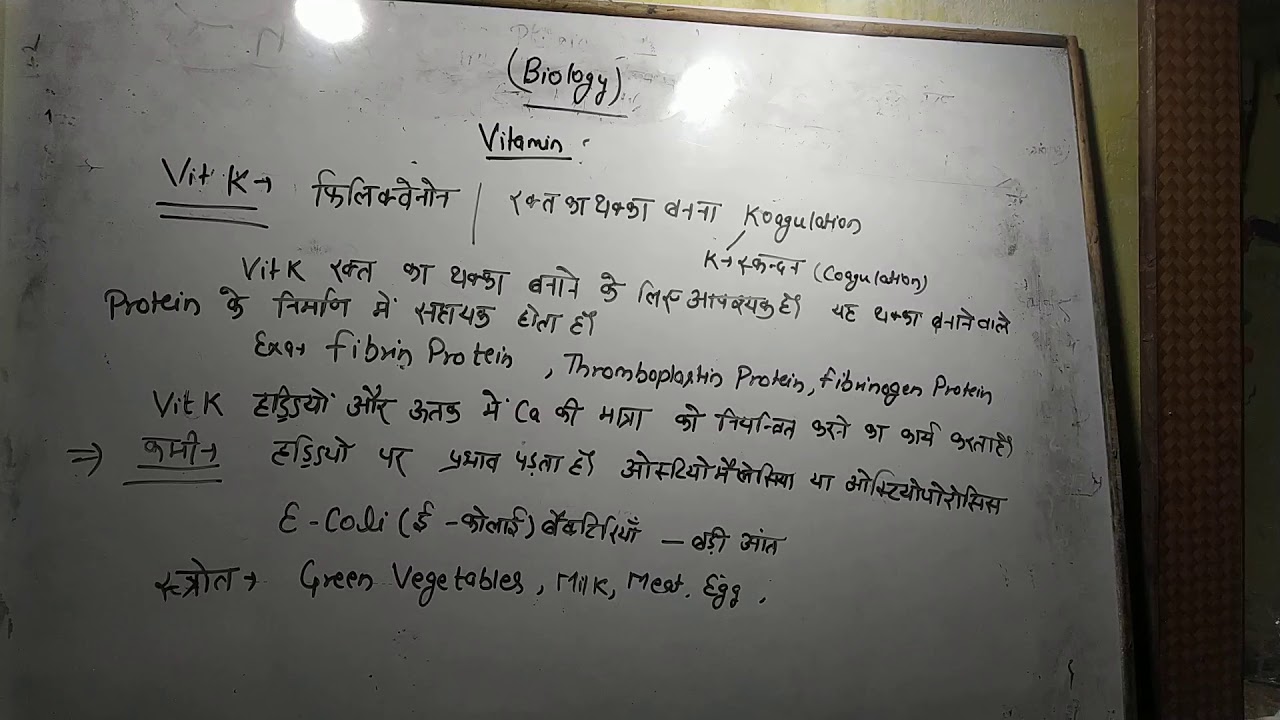 (Biology)
Vitamin :
Vit K → फिलिक्वेनोन | रक्त का थक्का बनना Koagulation
K→ स्कन्दन (Coagulation)
Vit K रक्त का थक्का बनाने के लिए आवश्यक है। यह थक्का बनाने वाले
Protein के निर्माण में सहायक होता है।
Exa→ fibrin Protein , Thromboplastin Protein, fibrinogen Protein
Vit K हड्डियों और ऊतक में Ca की मात्रा को नियन्त्रित करने का कार्य करता है।
⇒ कमी→ हड्डियो पर प्रभाव पड़ता है। ओस्टियोमैलेसिया या ओस्टियोपोरोसिस
E-Coli (ई-कोलाई) बैक्टिरियाँ – बड़ी आंत
स्त्रोत → Green Vegetables, Milk, Meat, Egg,